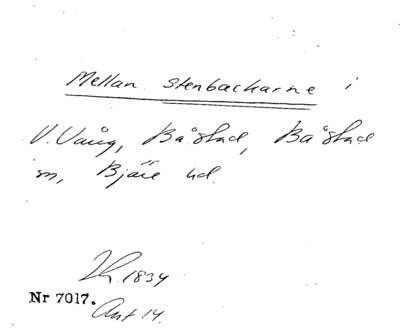 Mellan Stenbackarne i
V. Vång, Båstad, Båstad
sn, Bjäre hd.
1834
Nr 7017. Ant 14.